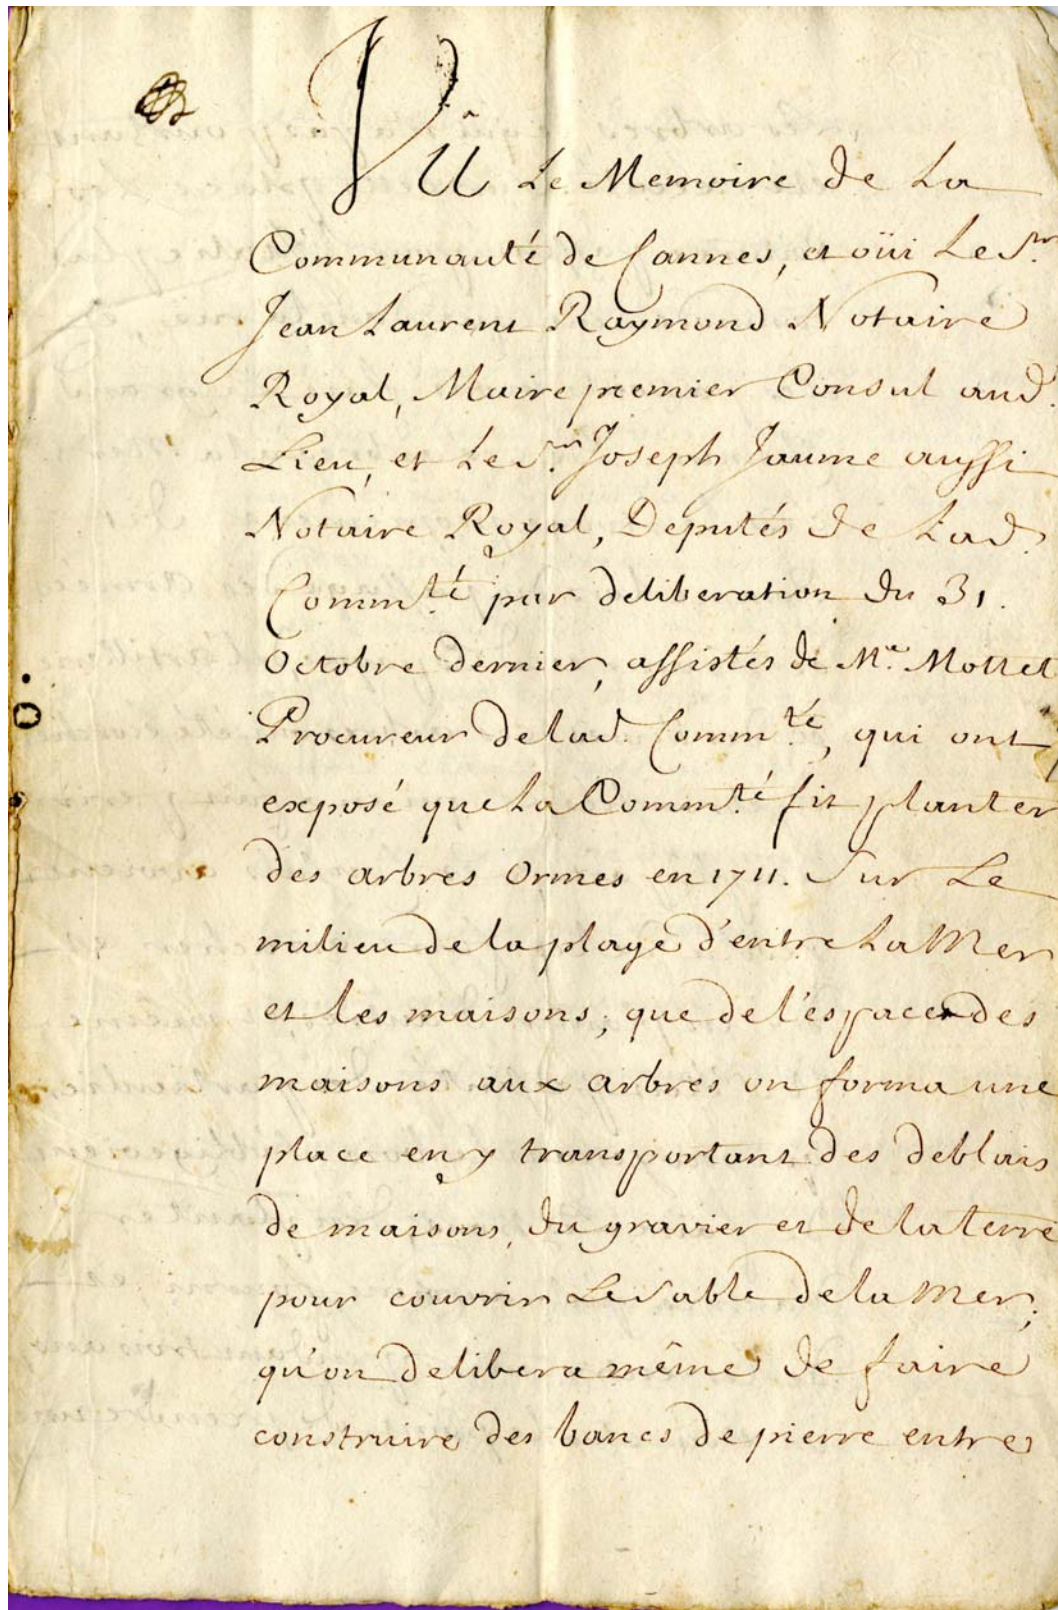 Vû Le Memoire de La
Communauté de Cannes, et oüi Le Sr.
Jean Laurent Raymond Notaire
Royal, Maire premier Consul aud.
Lieu, et Le Sr. Joseph Jaume aussi
Notaire Royal, Deputés de Lad.
Commté. par deliberation du 31.
Octobre dernier, assistés de Me. Mottet
Procureur de lad. Commté., qui ont
exposé que La Commté. fit planter
des arbres Ormes en 1711. Sur Le
milieu de la plage d'entre La Mer
et les maisons; que de l'espace des
maisons aux arbres on forma une
place en y transportant des deblais
de maisons, du gravier et de la terre
pour couvrir Le Sable de la Mer;
qu'on delibera même de faire
construire des bancs de pierre entre